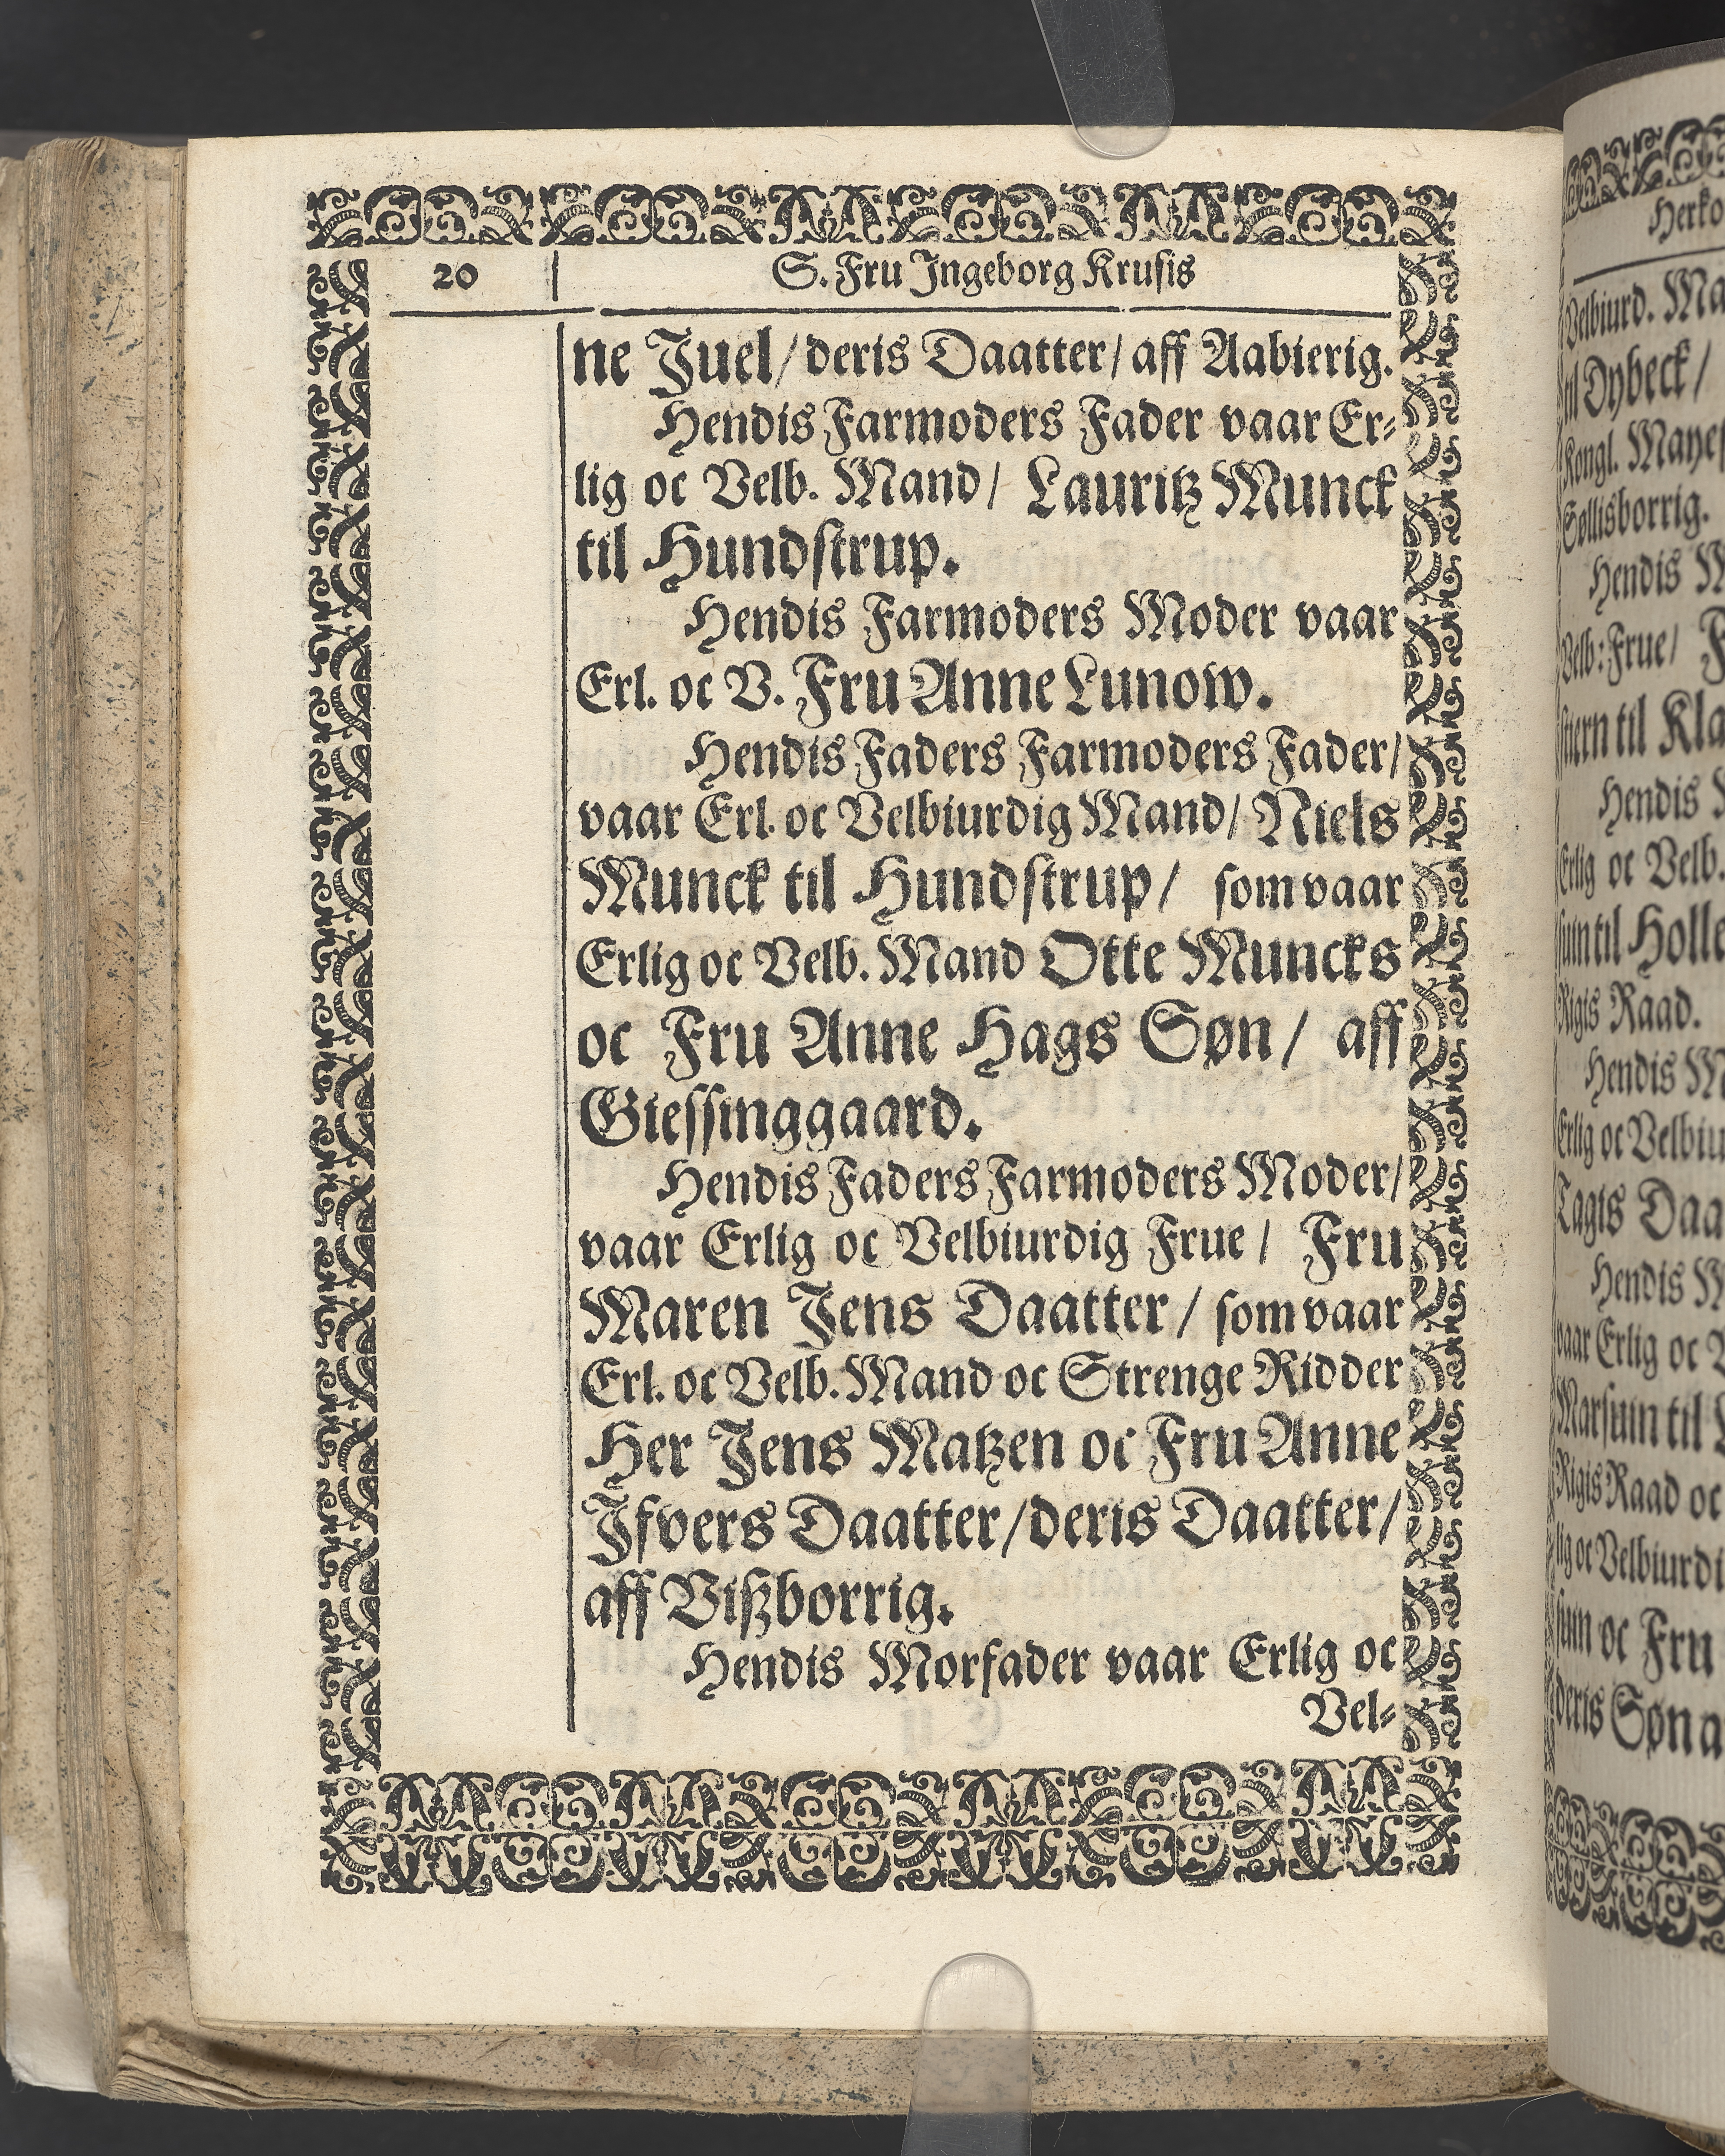 20
S. Fru Ingeborg Krusis
ne Juel/ deris Daatter/ aff Aabierig.
Hendis Farmoders Fader vaar Er-
lig oc Velb. Mand/ Lauritz Munck
til Hundstrup.
Hendis Farmoders Moder vaar
Erl. oc V. Fru Anne Lunow.
Hendis Faders Farmoders Fader/
vaar Erl. oc Velbiurdig Mand/ Niels
Munck til Hundstrup/ som vaar
Erlig oc Velb. Mand Otte Muncks
oc Fru Anne Hags Søn/ aff
Giessinggaard.
Hendis Faders Farmoders Moder/
vaar Erlig oc Velbiurdig Frue/ Fru
Maren Jens Daatter/ som vaar
Erl. oc Velb. Mand oc Strenge Ridder
Her Jens Matzen oc Fru Anne
Ifvers Daatter/ deris Daatter/
aff Vißborrig.
Hendis Morfader vaar Erlig oc
Vel-
Velbiurd.
til Dybeck/
Kongl.
Søllisborrig.
Hendis
Velb: Frue/
til
Hendis
Erlig oc Velb.
til
Rigis Raad.
Hendis
Erlig oc
Tagis
Hendis
vaar Erlig oc
Marsuin til
Rigis Raad oc
oc
oc Fru
deris Søn